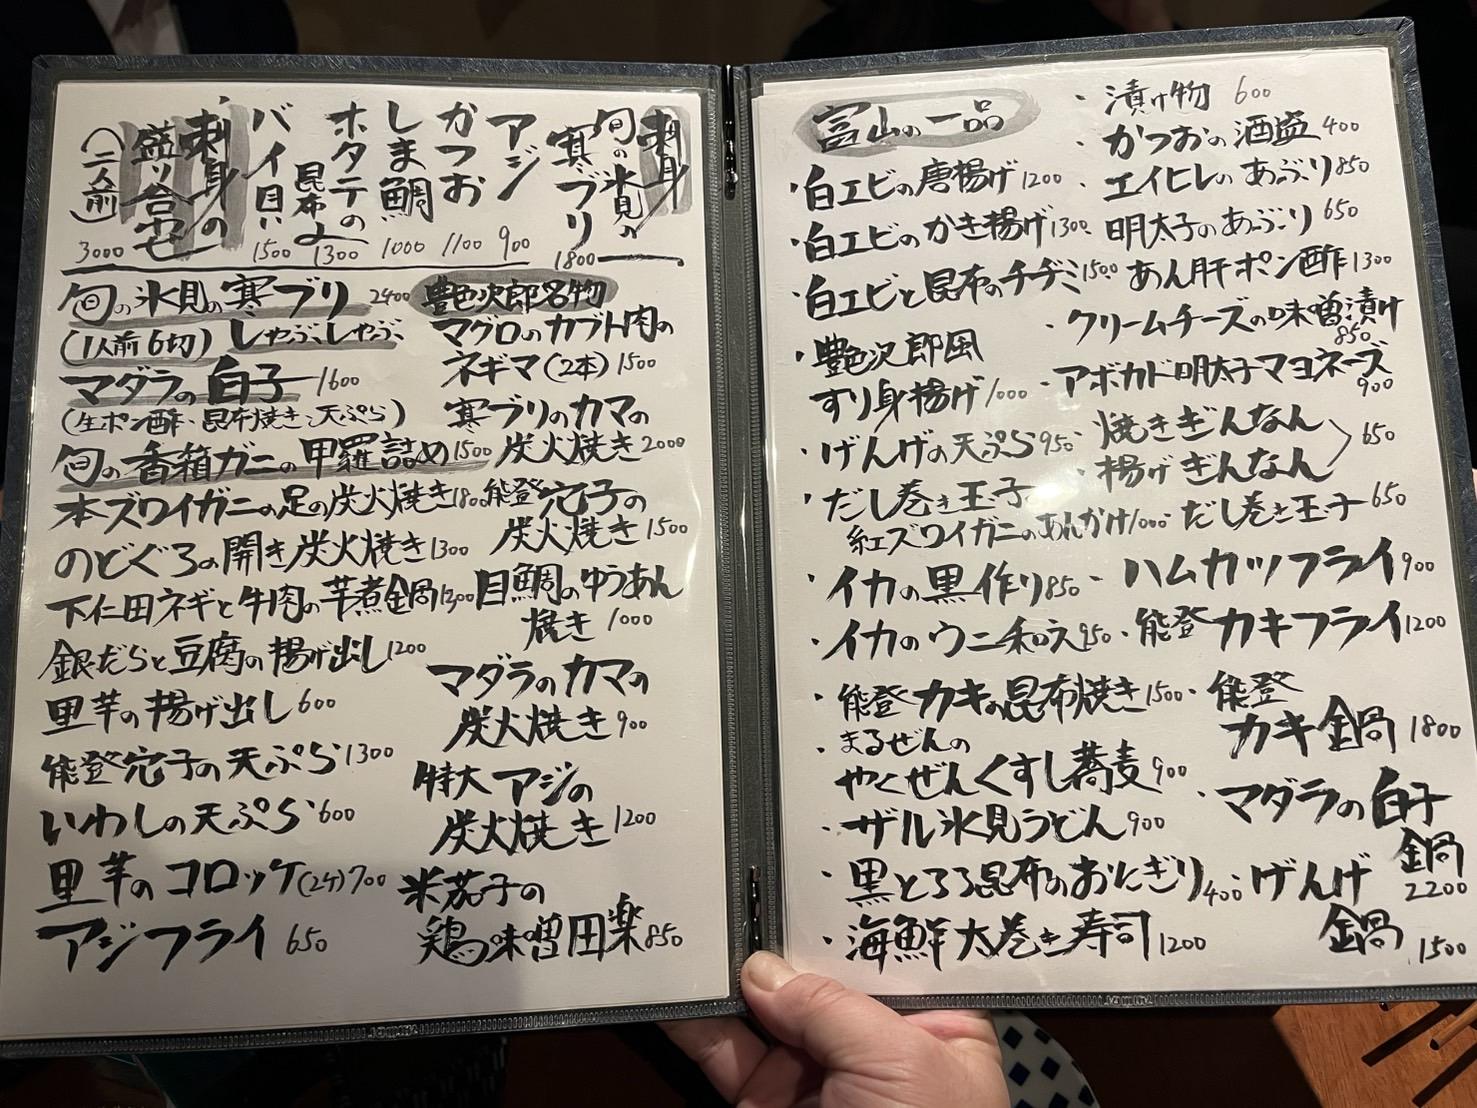 刺身
旬の氷見の
寒ブリ 1800
アジ 900
かつお 1100
しま鯛 1000
ホタテの
昆布〆 1300
バイ貝 1500
刺身の
盛り合せ
(二人前) 3000
旬の氷見の寒ブリ 2400
(1人前6切) しゃぶしゃぶ
マダラの白子 1600
(生ポン酢・昆布焼き・天ぷら)
旬の香箱ガニの甲羅詰め 1500
本ズワイガニの足の炭火焼き 1800
のどぐろの開き炭火焼き 1300
下仁田ネギと牛肉の芋煮鍋 1300
銀だらと豆腐の揚げ出し 1200
里芋の揚げ出し 600
能登穴子の天ぷら 1300
いわしの天ぷら 600
里芋のコロッケ(2ケ) 700
アジフライ 650
艶次郎名物
マグロのカブト肉の
ネギマ(2本) 1500
寒ブリのカマの
炭火焼き 2000
能登穴子の
炭火焼き 1500
目鯛のゆうあん
焼き 1000
マダラのカマの
炭火焼き 900
特大アジの
炭火焼き 1200
米茄子の
鶏味噌田楽 850
富山の一品
・白エビの唐揚げ 1200
・白エビのかき揚げ 1300
・白エビと昆布のチヂミ 1500
・艶次郎風
すり身揚げ 1000
・げんげの天ぷら 950
・だし巻き玉子
紅ズワイガニのあんかけ 1000
・イカの黒作り 850
・イカのウニ和え 950
・能登カキの昆布焼き 1500
・まるぜんの
やくぜんくすし蕎麦 900
・ザル氷見うどん 900
・黒とろろ昆布のおにぎり 400
・海鮮太巻き寿司 1200
・漬け物 600
・かつおの酒盗 400
・エイヒレのあぶり 850
・明太子のあぶり 650
あん肝ポン酢 1300
・クリームチーズの味噌漬け
850
・アボカド明太子マヨネーズ
900
・焼きぎんなん
・揚げぎんなん 650
・だし巻き玉子 650
・ハムカツフライ 900
・能登カキフライ 1200
・能登
カキ鍋 1800
・マダラの白子
鍋
2200
・げんげ
鍋 1500